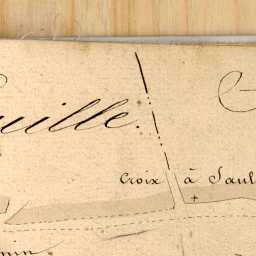 uille.
Croix à Saul
min